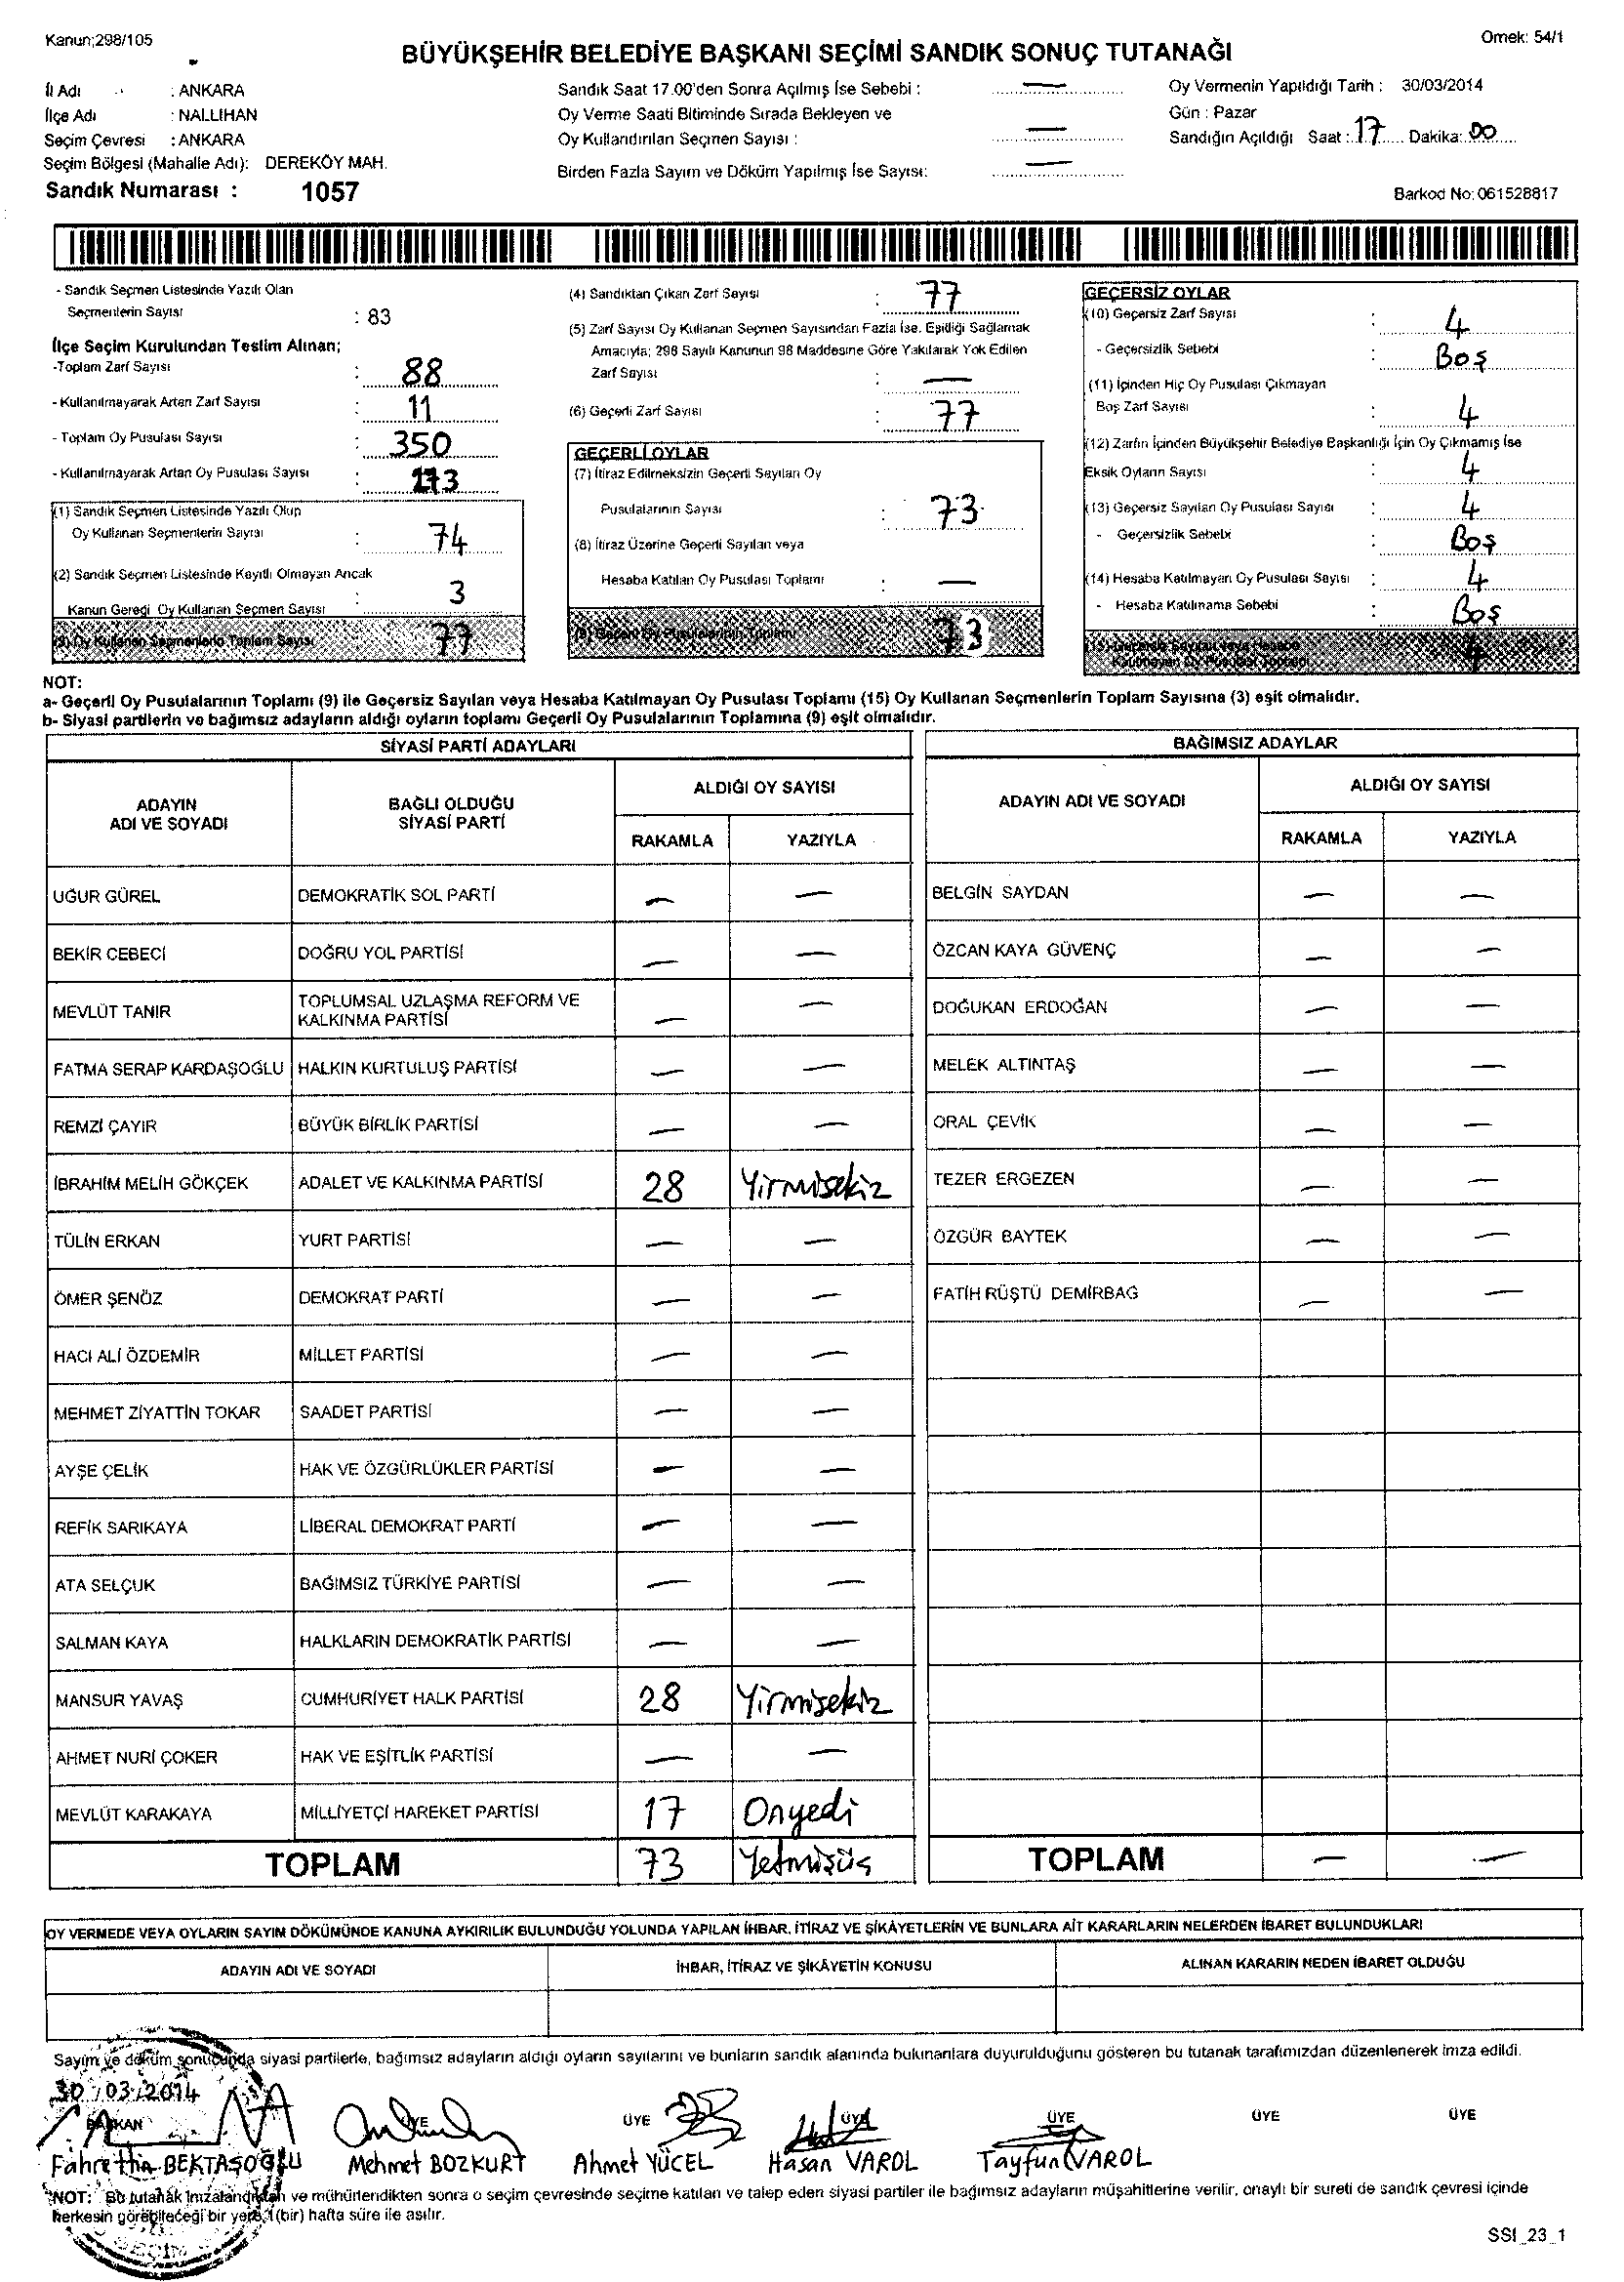 Kanun;298/105
Örnek: 54/1
BÜYÜKŞEHİR BELEDİYE BAŞKANI SEÇİMİ SANDIK SONUÇ TUTANAĞI
İl Adı : ANKARA
İlçe Adı : NALLIHAN
Seçim Çevresi : ANKARA
Seçim Bölgesi (Mahalle Adı): DEREKÖY MAH.
Sandık Numarası : 1057
Sandık Saat 17.00'den Sonra Açılmış İse Sebebi : —
Oy Verme Saati Bitiminde Sırada Bekleyen ve
Oy Kullandırılan Seçmen Sayısı : —
Birden Fazla Sayım ve Döküm Yapılmış İse Sayısı: —
Oy Vermenin Yapıldığı Tarih : 30/03/2014
Gün : Pazar
Sandığın Açıldığı Saat : 17 Dakika: 00
Barkod No: 061528817
- Sandık Seçmen Listesinde Yazılı Olan
Seçmenlerin Sayısı : 83
İlçe Seçim Kurulundan Teslim Alınan;
-Toplam Zarf Sayısı : 88
- Kullanılmayarak Artan Zarf Sayısı : 11
- Toplam Oy Pusulası Sayısı : 350
- Kullanılmayarak Artan Oy Pusulası Sayısı : 273
(1) Sandık Seçmen Listesinde Yazılı Olup
Oy Kullanan Seçmenlerin Sayısı : 74
(2) Sandık Seçmen Listesinde Kayıtlı Olmayan Ancak
Kanun Gereği Oy Kullanan Seçmen Sayısı : 3
(3) Oy Kullanan Seçmenlerin Toplam Sayısı 77
(4) Sandıktan Çıkan Zarf Sayısı : 77
(5) Zarf Sayısı Oy Kullanan Seçmen Sayısından Fazla İse, Eşitliği Sağlamak
Amacıyla; 298 Sayılı Kanunun 98 Maddesine Göre Yakılarak Yok Edilen
Zarf Sayısı : —
(6) Geçerli Zarf Sayısı : 77
GEÇERLİ OYLAR
(7) İtiraz Edilmeksizin Geçerli Sayılan Oy
Pusulalarının Sayısı : 73
(8) İtiraz Üzerine Geçerli Sayılan veya
Hesaba Katılan Oy Pusulası Toplamı : —
(9) Geçerli Oy Pusulalarının Toplamı 73
GEÇERSİZ OYLAR
(10) Geçersiz Zarf Sayısı : 4
- Geçersizlik Sebebi : Boş
(11) İçinden Hiç Oy Pusulası Çıkmayan
Boş Zarf Sayısı : 4
(12) Zarfın İçinden Büyükşehir Belediye Başkanlığı İçin Oy Çıkmamış İse
Eksik Oyların Sayısı : 4
(13) Geçersiz Sayılan Oy Pusulası Sayısı : 4
- Geçersizlik Sebebi : Boş
(14) Hesaba Katılmayan Oy Pusulası Sayısı : 4
- Hesaba Katılmama Sebebi : Boş
(15) Geçersiz Sayılan veya Hesaba
Katılmayan Oy Pusulası Toplamı 4
NOT:
a- Geçerli Oy Pusulalarının Toplamı (9) ile Geçersiz Sayılan veya Hesaba Katılmayan Oy Pusulası Toplamı (15) Oy Kullanan Seçmenlerin Toplam Sayısına (3) eşit olmalıdır.
b- Siyasi partilerin ve bağımsız adayların aldığı oyların toplamı Geçerli Oy Pusulalarının Toplamına (9) eşit olmalıdır.
SİYASİ PARTİ ADAYLARI
ADAYIN ADI VE SOYADI BAĞLI OLDUĞU SİYASİ PARTİ ALDIĞI OY SAYISI
RAKAMLA YAZIYLA
UĞUR GÜREL DEMOKRATİK SOL PARTİ — —
BEKİR CEBECİ DOĞRU YOL PARTİSİ — —
MEVLÜT TANIR TOPLUMSAL UZLAŞMA REFORM VE KALKINMA PARTİSİ — —
FATMA SERAP KARDAŞOĞLU HALKIN KURTULUŞ PARTİSİ — —
REMZİ ÇAYIR BÜYÜK BİRLİK PARTİSİ — —
İBRAHİM MELİH GÖKÇEK ADALET VE KALKINMA PARTİSİ 28 Yirmisekiz
TÜLİN ERKAN YURT PARTİSİ — —
ÖMER ŞENÖZ DEMOKRAT PARTİ — —
HACI ALİ ÖZDEMİR MİLLET PARTİSİ — —
MEHMET ZİYATTİN TOKAR SAADET PARTİSİ — —
AYŞE ÇELİK HAK VE ÖZGÜRLÜKLER PARTİSİ — —
REFİK SARIKAYA LİBERAL DEMOKRAT PARTİ — —
ATA SELÇUK BAĞIMSIZ TÜRKİYE PARTİSİ — —
SALMAN KAYA HALKLARIN DEMOKRATİK PARTİSİ — —
MANSUR YAVAŞ CUMHURİYET HALK PARTİSİ 28 Yirmisekiz
AHMET NURİ ÇOKER HAK VE EŞİTLİK PARTİSİ — —
MEVLÜT KARAKAYA MİLLİYETÇİ HAREKET PARTİSİ 17 Onyedi
TOPLAM 73 Yetmişüç
BAĞIMSIZ ADAYLAR
ADAYIN ADI VE SOYADI ALDIĞI OY SAYISI
RAKAMLA YAZIYLA
BELGİN SAYDAN — —
ÖZCAN KAYA GÜVENÇ — —
DOĞUKAN ERDOĞAN — —
MELEK ALTINTAŞ — —
ORAL ÇEVİK — —
TEZER ERGEZEN — —
ÖZGÜR BAYTEK — —
FATİH RÜŞTÜ DEMİRBAĞ — —
TOPLAM — —
OY VERMEDE VEYA OYLARIN SAYIM DÖKÜMÜNDE KANUNA AYKIRILIK BULUNDUĞU YOLUNDA YAPILAN İHBAR, İTİRAZ VE ŞİKÂYETLERİN VE BUNLARA AİT KARARLARIN NELERDEN İBARET BULUNDUKLARI
ADAYIN ADI VE SOYADI İHBAR, İTİRAZ VE ŞİKÂYETİN KONUSU ALINAN KARARIN NEDEN İBARET OLDUĞU
Sayım ve döküm sonucunda siyasi partilerle, bağımsız adayların aldığı oyların sayılarını ve bunların sandık alanında bulunanlara duyurulduğunu gösteren bu tutanak tarafımızdan düzenlenerek imza edildi.
30/03/2014
BAŞKAN ÜYE ÜYE ÜYE ÜYE ÜYE ÜYE
Fahrettin BEKTAŞOĞLU Mehmet BOZKURT Ahmet YÜCEL Hasan VAROL Tayfun VAROL
NOT: Bu tutanak imzalandıktan ve mühürlendikten sonra o seçim çevresinde seçime katılan ve talep eden siyasi partiler ile bağımsız adayların müşahitlerine verilir, onaylı bir sureti de sandık çevresi içinde
herkesin görebileceği bir yere 1 (bir) hafta süre ile asılır.
SEÇİM
SSI_23_1